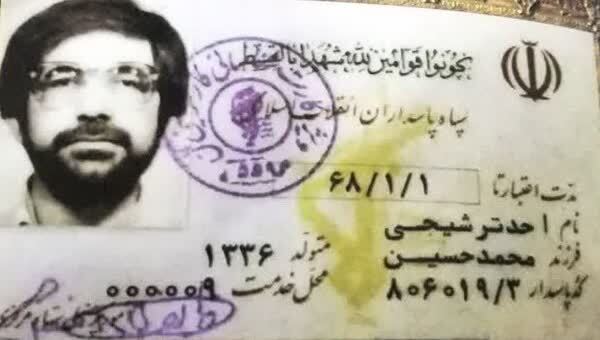 کونوا قوامین لله شهداء بالقسط
سپاه پاسداران انقلاب اسلامی
مدت اعتبارتا ۶۸/۱/۱
نام احدترشیحی
فرزند محمدحسین متولد ۱۳۳۶
کدپاسدار ۸۰۶۰۱۹/۳ محل خدمت ۰۰۰.۰۰۹